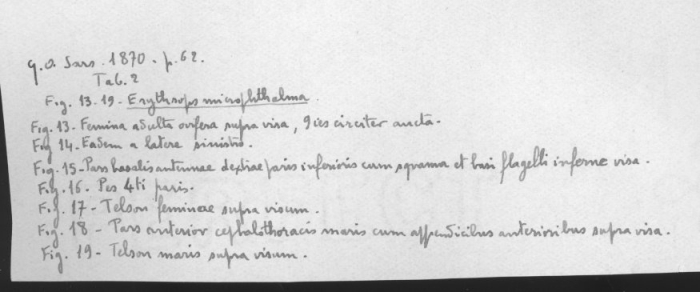 G. O. Sars. 1870. p. 62.
Tab. 2
Fig. 13-19. Erythrops microphthalma
Fig. 13. Femina adulta ovifera supra visa, 9ies circiter aucta.
Fig. 14. Eadem a latere sinistro.
Fig. 15 - Pars basalis antennae dextrae paris inferioris cum squama et basi flagelli inferne visa.
Fig. 16. Pes 4ti paris.
Fig. 17 - Telson feminae supra visum.
Fig. 18 - Pars anterior cephalothoracis maris cum appendicibus anterioribus supra visa.
Fig. 19 - Telson maris supra visum.